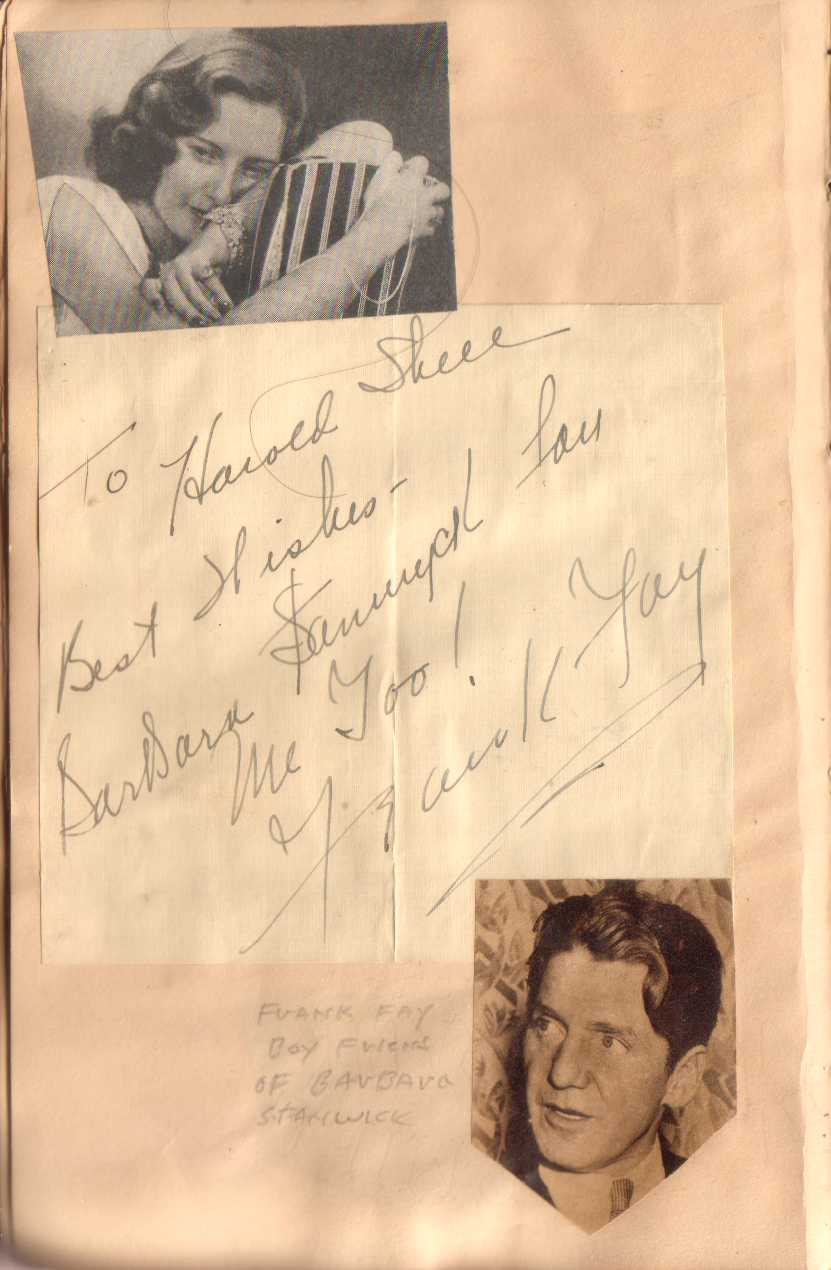 To Harold
Best Wishes-
Barbara Stanwyck Fay
Me Too!
Frank Fay
FRANK FAY
BOY FRIEND
OF BARBARA
STANWICK